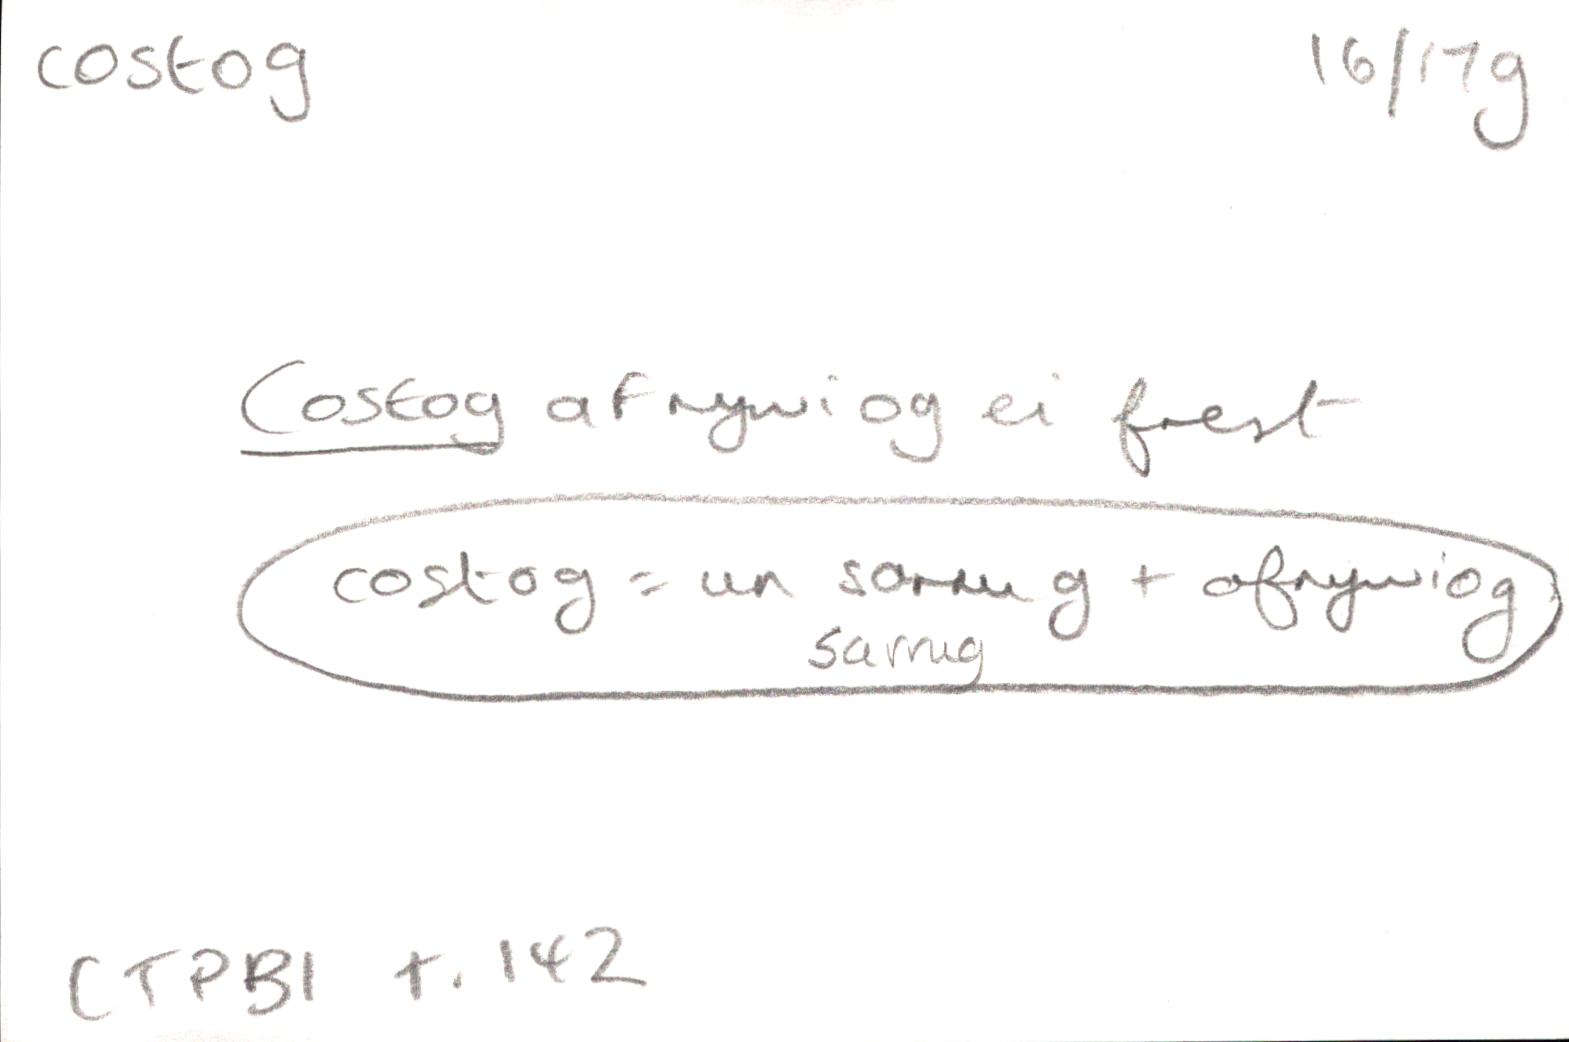 costog 16/17g
Costog afrywiog ei frest
costog = un sarrug + afrywiog
sarrug
CTPB1 t. 142